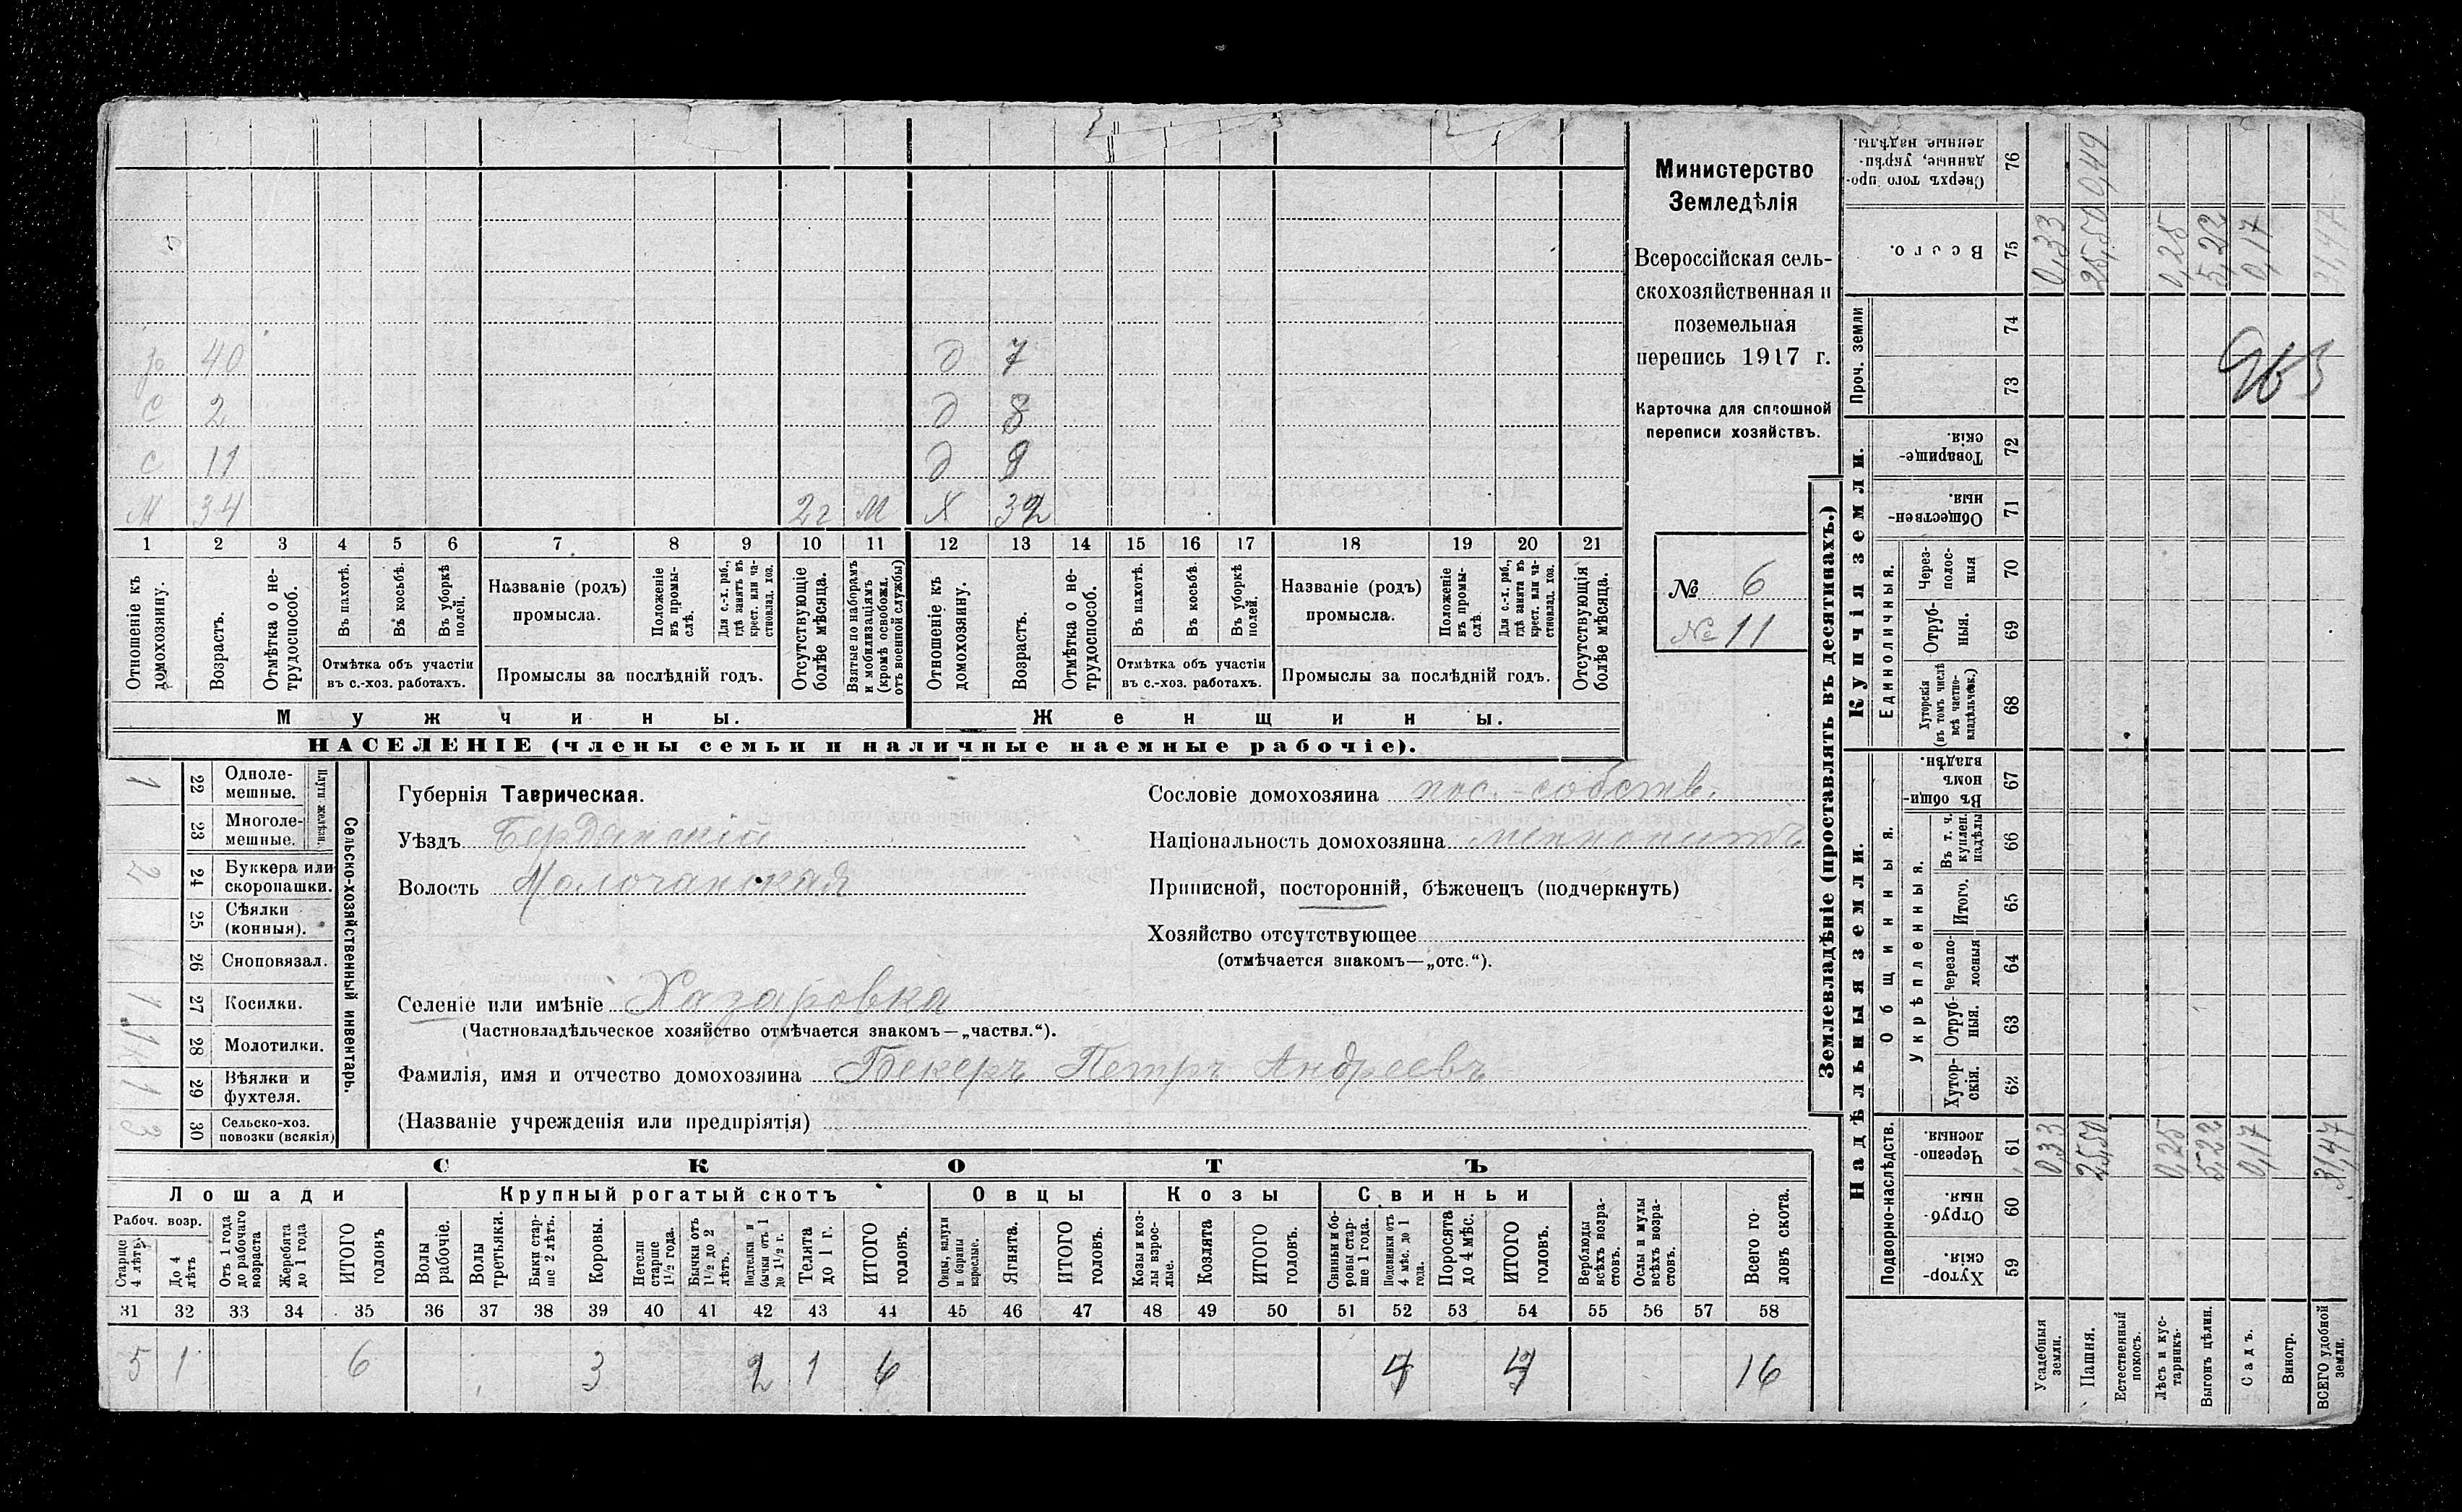 р 40 д 7
с 2 д 8
с 11 д 9
М 34 2г М Х 32
1 2 3 4 5 6 7 8 9 10 11 12 13 14 15 16 17 18 19 20 21
Отношеніе къ домохозяину.
Возрастъ.
Отмѣтка о не-трудоспособ.
Въ пахотѣ.
Въ косьбѣ.
Въ уборкѣ полей.
Отмѣтка объ участіи
въ с.-хоз. работахъ.
Названіе (родъ)
промысла.
Положеніе въ промы-слѣ.
Для с.-х. раб., гдѣ занятъ въ крест. или ча-стновлад. хоз.
Промыслы за послѣдній годъ.
Отсутствующіе болѣе мѣсяца.
Взятые по наборамъ и мобилизаціямъ (кромѣ освобожд. отъ военной службы)
Отношеніе къ домохозяину.
Возрастъ.
Отмѣтка о не-трудоспособ.
Въ пахотѣ.
Въ косьбѣ.
Въ уборкѣ полей.
Отмѣтка объ участіи
въ с.-хоз. работахъ.
Названіе (родъ)
промысла.
Положеніе въ промы-слѣ.
Для с.-х. раб., гдѣ занятъ въ крест. или ча-стновлад. хоз.
Промыслы за послѣдній годъ.
Отсутствующія болѣе мѣсяца.
Мужчины. Женщины.
НАСЕЛЕНІЕ (члены семьи и наличные наемные рабочіе).
Министерство
Земледѣлія
Всероссійская сель-
скохозяйственная и
поземельная
перепись 1917 г.
Карточка для сплошной
переписи хозяйствъ.
№ 6
№ 11
Сельско-хозяйственный инвентарь.
Плуги желѣзн.
1 22 Одноле-мешные.
23 Многоле-мешные.
2 24 Буккера или скоропашки.
25 Сѣялки (конныя).
26 Сноповязал.
1 27 Косилки.
1к 28 Молотилки.
1 29 Вѣялки и фухтеля.
3 30 Сельско-хоз. повозки (всякія)
Губернія Таврическая.
Уѣздъ Бердянскій
Волость Молочанская
Селеніе или имѣніе Хазаровка
(Частновладѣльческое хозяйство отмѣчается знакомъ—„частвл.“).
Фамилія, имя и отчество домохозяина Бекеръ Петръ Андреевъ
(Названіе учрежденія или предпріятія)
Сословіе домохозяина пос.-собств.
Національность домохозяина меннонитъ
Приписной, посторонній, бѣженецъ (подчеркнуть)
Хозяйство отсутствующее
(отмѣчается знакомъ—„отс.“).
СКОТЪ
Лошади Крупный рогатый скотъ Овцы Козы Свиньи
Рабоч. возр.
Старше 4 лѣтъ.
До 4 лѣтъ
Отъ 1 года до рабочаго возраста
Жеребята до 1 года
ИТОГО головъ
Волы рабочіе.
Волы третьяки.
Быки стар-ше 2 лѣтъ.
Коровы.
Нетели старше 1½ года.
Бычки отъ 1½ до 2 лѣтъ.
Подтелки и бычки отъ 1 до 1½ г.
Телята до 1 г.
ИТОГО головъ.
Овцы, валухи и бараны взрослые.
Ягнята.
ИТОГО головъ.
Козы и коз-лы взрос-лые.
Козлята
ИТОГО головъ.
Свиньи и бо-ровы стар-ше 1 года.
Подсвинки отъ 4 мѣс. до 1 года.
Поросята до 4 мѣс.
ИТОГО головъ.
Верблюды всѣхъ возра-стовъ.
Ослы и мулы всѣхъ возра-стовъ.
Всего го-ловъ скота.
31 32 33 34 35 36 37 38 39 40 41 42 43 44 45 46 47 48 49 50 51 52 53 54 55 56 57 58
5 1 6 3 2 1 6 4 4 16
Землевладѣніе (проставлять въ десятинахъ.)
Купчія земли.
Надѣльныя земли.
Сверхъ того про-данные, укрѣп-ленные надѣлы. 76
Всего. 75
Проч. земли 74 73
Товарище-скія. 72
Обществен-ныя. 71
Единоличныя.
Черес-полос-ныя 70
Отруб-ныя. 69
Хуторскія (въ томъ числѣ всѣ частно-владѣльческ.) 68
Общинныя.
Въ общи-номъ владѣн. 67
Укрѣпленныя.
Въ т. ч. куплен. надѣлы 66
Итого. 65
Черезпо-лосныя 64
Отруб-ныя. 63
Хутор-скія. 62
Подворно-наслѣдств.
Черезпо-лосныя. 61
Отруб-ныя. 60
Хутор-скія. 59
Усадебныя земли. 0,33 0,33
Пашня. 25,50 25,50 0,449
Естественный покосъ.
Лѣсъ и кус-тарникъ. 0,25 0,25
Выгонъ цѣлин. 5,22 5,22
Садъ. 0,17 0,17
Виногр.
ВСЕГО удобной земли. 31,47 31,47